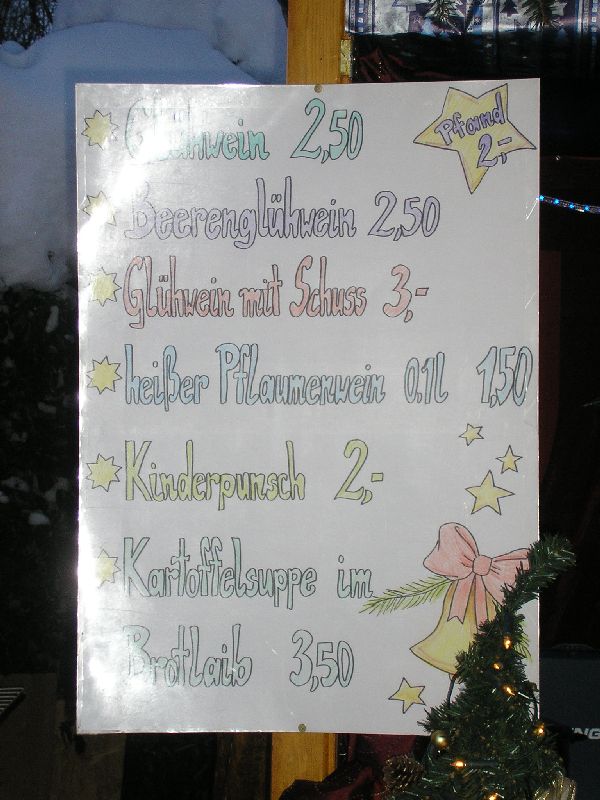 Glühwein 2,50
Pfand
2,-
Beerenglühwein 2,50
Glühwein mit Schuss 3,-
heißer Pflaumenwein 0.1l 1,50
Kinderpunsch 2,-
Kartoffelsuppe im
Brotlaib 3,50